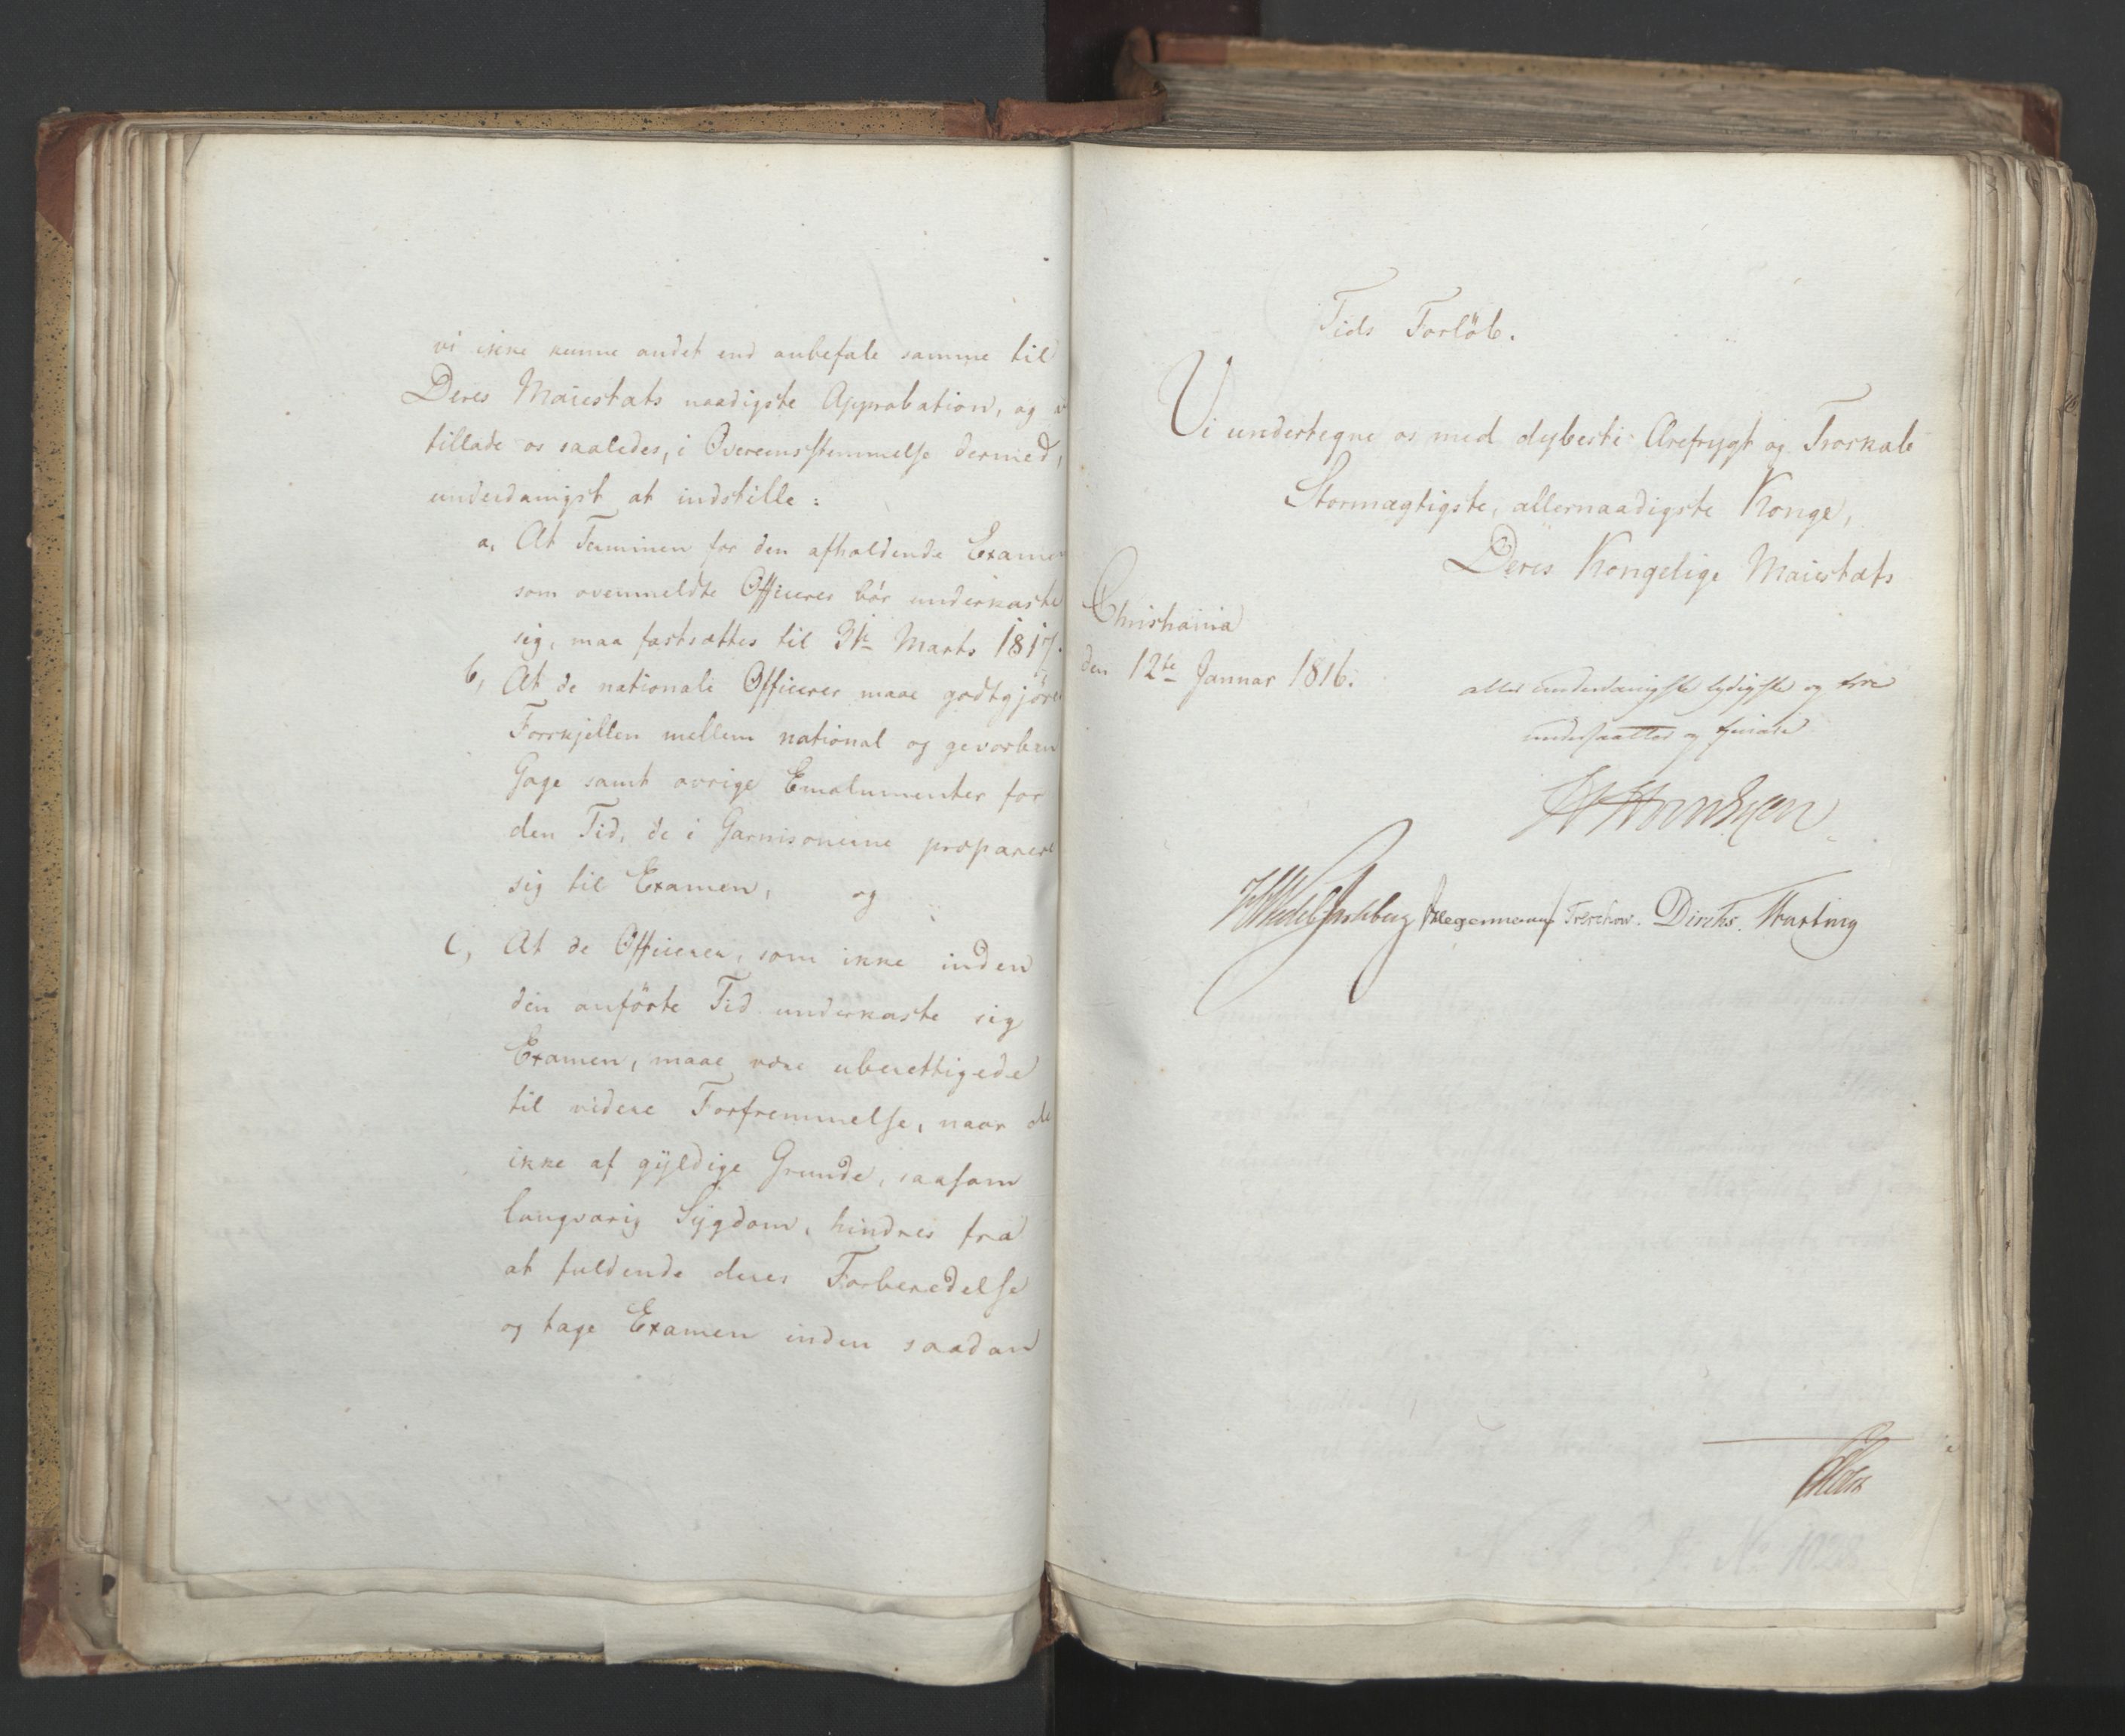 vi ikke kunne andet end anbefale samme til
Deres Maiestæts naadigste Approbation, og
tillade os saaledes, i Overeensstemmelse dermed,
underdanigst at indstille:
a, At Terminen for den afholdende Examen
som ovenmeldte Officerer bör underkaste
sig, maa fastsættes til 31te Marts 1817.
b, At de nationale Officerer maae godtgjöres
Forskjellen mellem national og gevorben
Gage samt øvrige Emolumenter for
den Tid, de i Garnisonerne præparere
sig til Examen, og
c, At de Officerer, som ikke inden
den anförte Tid underkaste sig
Examen, maae være uberettigede
til videre Forfremmelse, naar de
ikke af gyldige Grunde, saasom
langvarig Sygdom, hindres fra
at fuldende deres Forberedelse
og tage Examen inden saadan
Tids Forlöb.
Vi undertegne os med dybeste Ærefrygt og Troskab
Stormægtigste, allernaadigste Konge,
Deres Kongelige Maiestæts
Christiania
den 12te Januar 1816.
allerunderdanigste lydigste og troe
undersaatter og tienere
Hegermann Treschow. Diriks. Motzfeldt
N. 1028